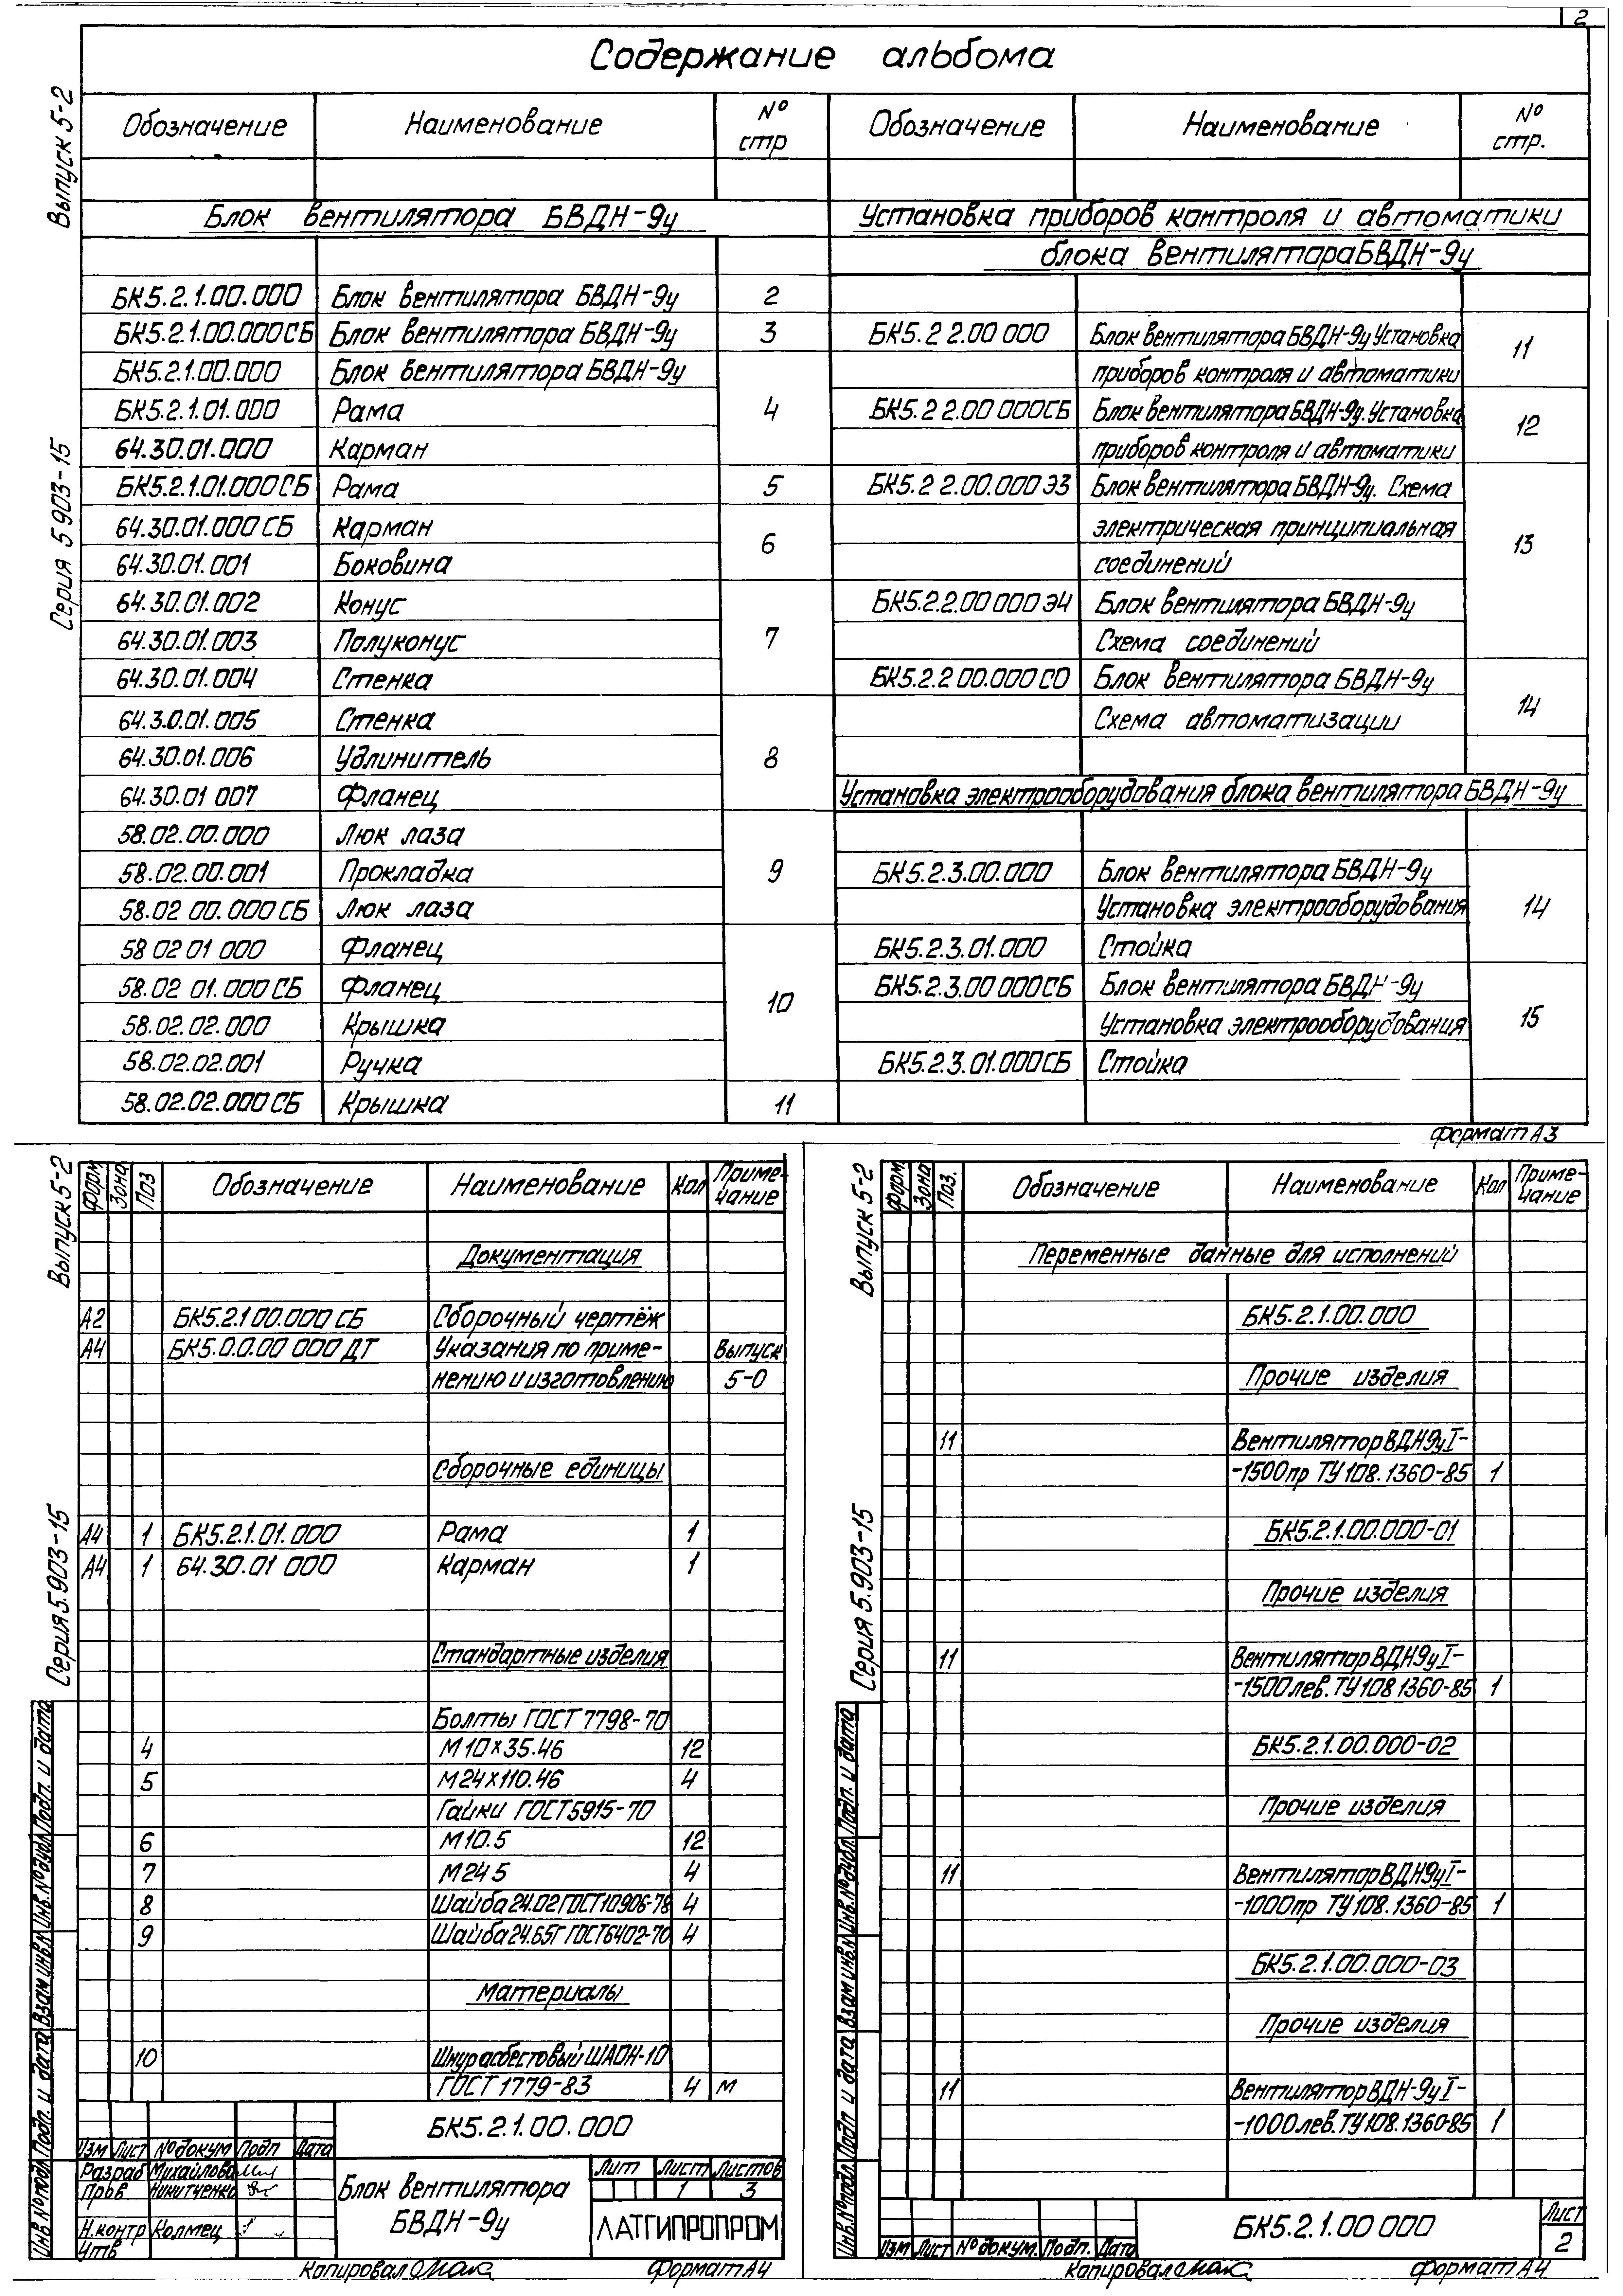 2
Содержание альбома
Выпуск 5-2
Серия 5 903-15
Обозначение Наименование № стр
Блок вентилятора БВДН-9у
БК5.2.1.00.000 Блок вентилятора БВДН-9у 2
БК5.2.1.00.000СБ Блок вентилятора БВДН-9у 3
БК5.2.1.00.000 Блок вентилятора БВДН-9у
БК5.2.1.01.000 Рама 4
64.30.01.000 Карман
БК5.2.1.01.000СБ Рама 5
64.30.01.000СБ Карман 6
64.30.01.001 Боковина
64.30.01.002 Конус
64.30.01.003 Полуконус 7
64.30.01.004 Стенка
64.3.0.01.005 Стенка
64.30.01.006 Удлинитель 8
64.30.01 007 Фланец
58.02.00.000 Люк лаза
58.02.00.001 Прокладка 9
58.02 00.000СБ Люк лаза
58 02 01 000 Фланец
58.02 01.000СБ Фланец 10
58.02.02.000 Крышка
58.02.02.001 Ручка
58.02.02.000СБ Крышка 11
Обозначение Наименование № стр.
Установка приборов контроля и автоматики
блока вентилятора БВДН-9у
БК5.2 2.00 000 Блок вентилятора БВДН-9у Установка 11
приборов контроля и автоматики
БК5.2 2.00 000СБ Блок вентилятора БВДН-9у. Установка 12
приборов контроля и автоматики
БК5.2 2.00.000Э3 Блок вентилятора БВДН-9у. Схема
электрическая принципиальная 13
соединений
БК5.2.2.00 000Э4 Блок вентилятора БВДН-9у
Схема соединений
БК5.2.2 00.000СО Блок вентилятора БВДН-9у
Схема автоматизации 14
Установка электрооборудования блока вентилятора БВДН-9у
БК5.2.3.00.000 Блок вентилятора БВДН-9у
Установка электрооборудования 14
БК5.2.3.01.000 Стойка
БК5.2.3.00 000СБ Блок вентилятора БВДН-9у
Установка электрооборудования 15
БК5.2.3.01.000СБ Стойка
Формат А3
Выпуск 5-2
Серия 5.903-15
Форм. Зона Поз Обозначение Наименование Кол Приме-
чание
Документация
А2 БК5.2.1 00.000 СБ Сборочный чертёж
А4 БК5.0.0.00 000 ДТ Указания по приме- Выпуск
нению и изготовлению 5-0
Сборочные единицы
А4 1 БК5.2.1.01.000 Рама 1
А4 1 64.30.01 000 Карман 1
Стандартные изделия
Болты ГОСТ 7798-70
4 М10×35.46 12
5 М24×110.46 4
Гайки ГОСТ5915-70
6 М10.5 12
7 М24 5 4
8 Шайба 24.02 ГОСТ10906-78 4
9 Шайба 24.65Г ГОСТ6402-70 4
Материалы
10 Шнур асбестовый ШАОН-10
ГОСТ 1779-83 4 м
Инв.№подл. Подп. и дата Взам инв.№ Инв.№дубл. Подп. и дата
БК5.2.1.00.000
Изм Лист №докум Подп Дата
Разраб Михайлова
Пров Никитченко
Н.контр Колмец
Утв
Блок вентилятора
БВДН-9у
Лит Лист Листов
1 3
ЛАТГИПРОПРОМ
Копировал
Формат А4
Выпуск 5-2
Серия 5.903-15
Форм. Зона Поз. Обозначение Наименование Кол Приме-
чание
Переменные данные для исполнений
БК5.2.1.00.000
Прочие изделия
11 Вентилятор ВДН9уI-
-1500пр ТУ108.1360-85 1
БК5.2.1.00.000-01
Прочие изделия
11 Вентилятор ВДН9уI-
-1500лев. ТУ108 1360-85 1
БК5.2.1.00.000-02
Прочие изделия
11 Вентилятор ВДН9уI-
-1000пр ТУ108.1360-85 1
БК5.2.1.00.000-03
Прочие изделия
11 Вентилятор ВДН-9уI-
-1000лев. ТУ108.1360-85 1
Инв.№подл. Подп и дата Взам инв.№ Инв.№дубл. Подп. и дата
Изм Лист №докум. Подп. Дата
БК5.2.1.00 000
Лист
2
Копировал
Формат А4